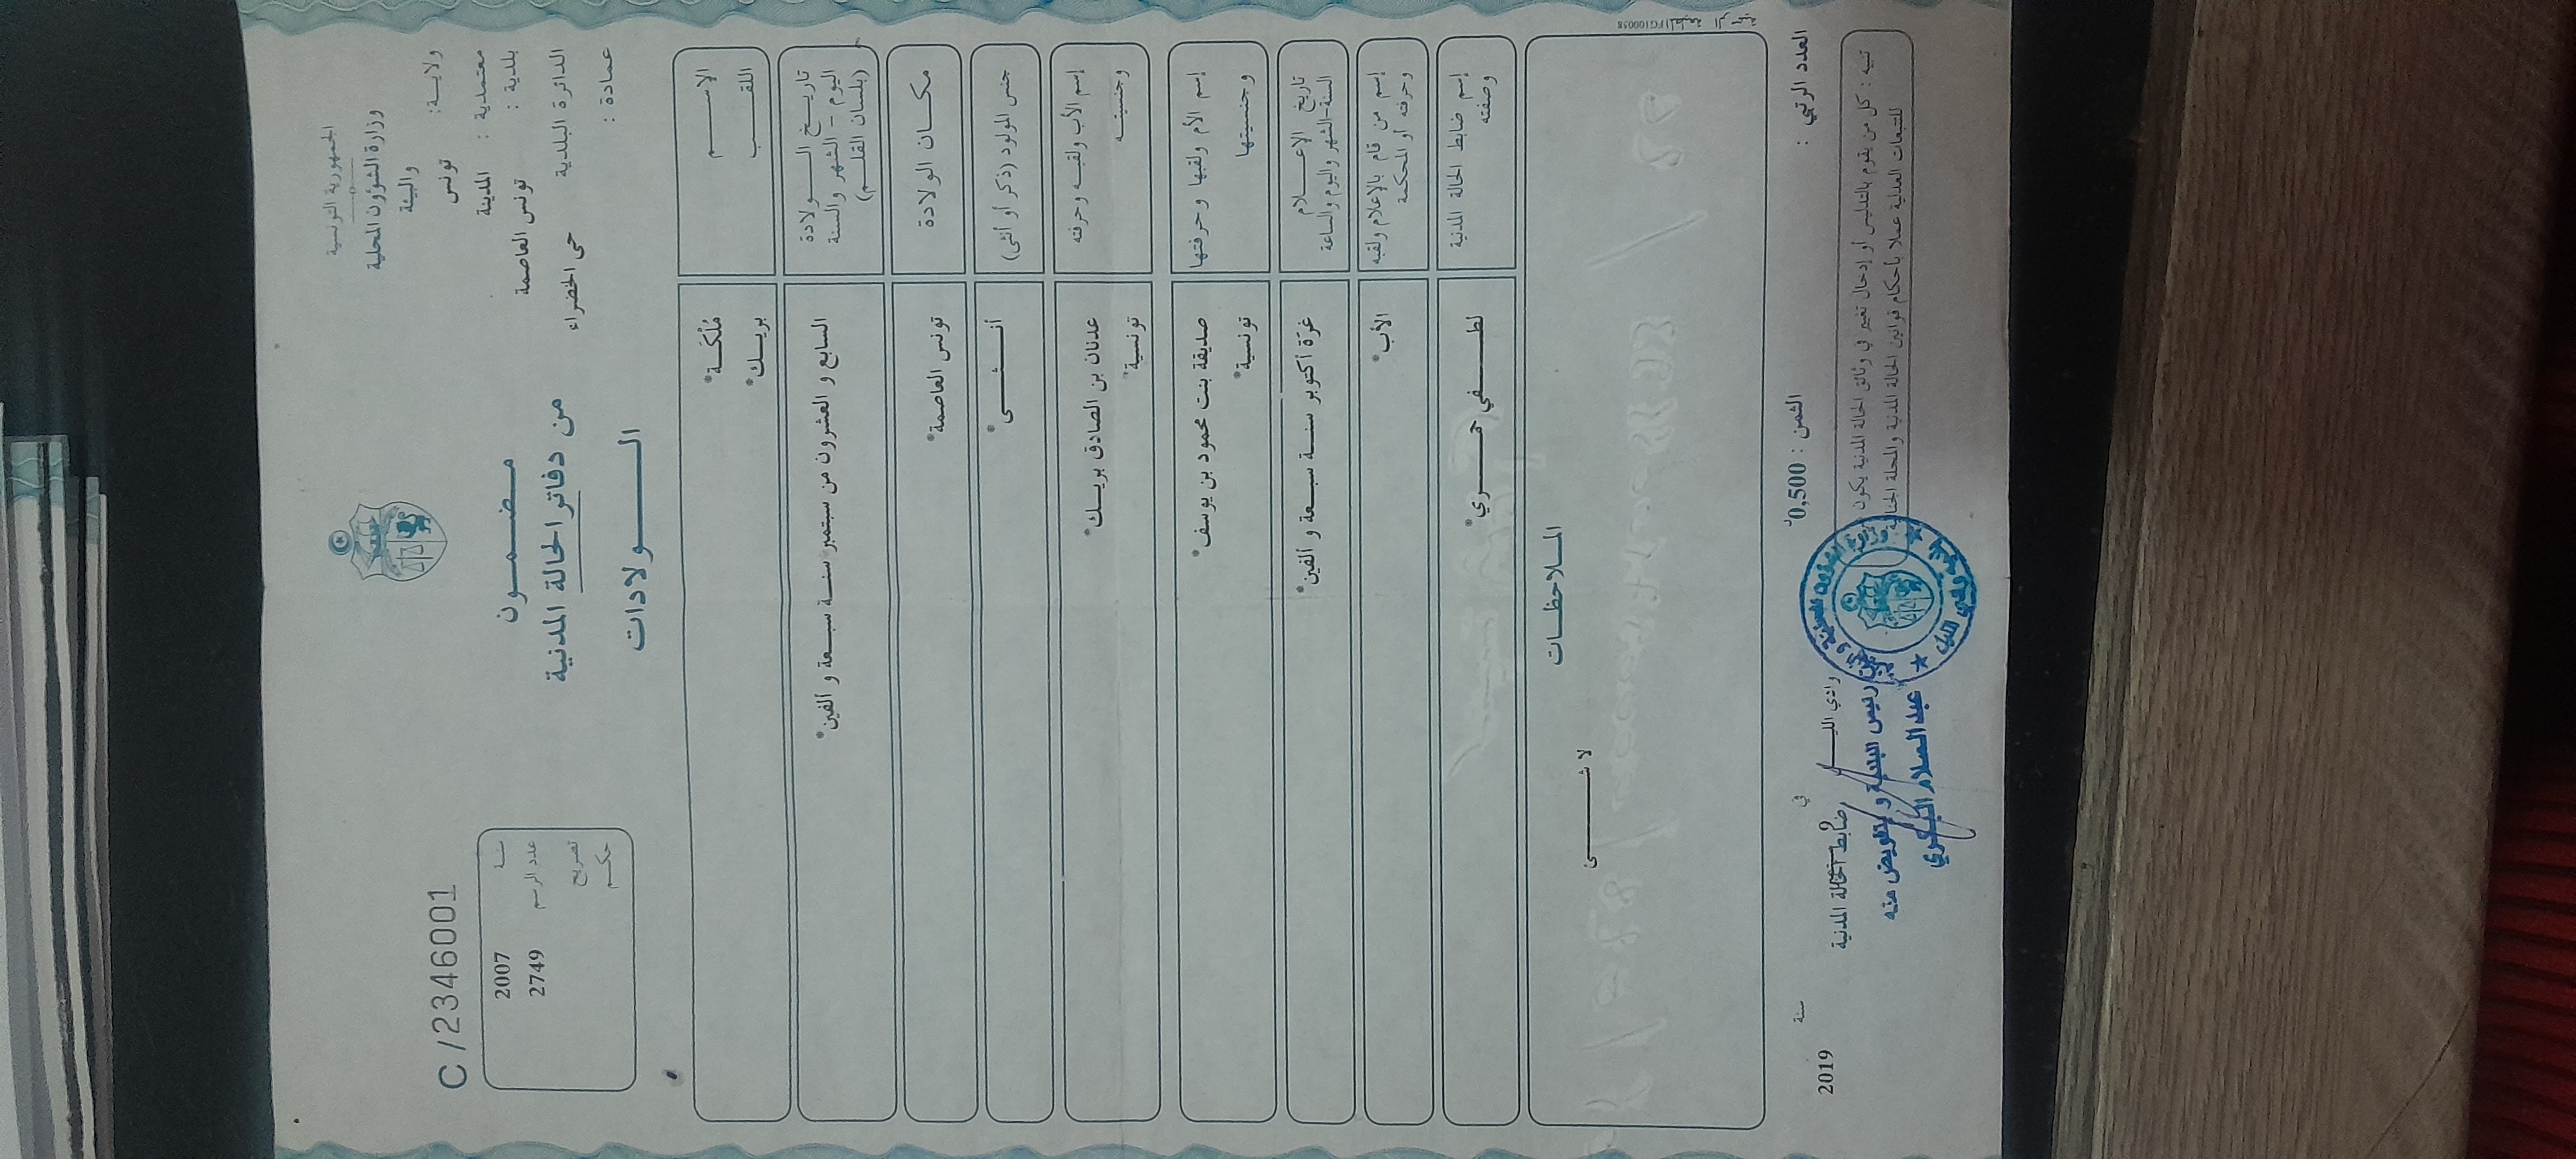 الجمهورية التونسية
وزارة الشؤون المحلية
والبيئة
ولاية: تونس
معتمدية : المدينة
بلدية : تونس العاصمة
الدائرة البلدية حي الخضراء
عمادة :
C /2346001
سنة 2007
عدد الرسم 2749
تصريح
حكم
مضمون
من دفاتر الحالة المدنية
الولادات
الاسم مُلْكَة*
اللقب بريك*
تاريخ الولادة
اليوم - الشهر والسنة
(بلسان القلم)
السابع و العشرون من سبتمبر سنة سبعة و ألفين*
مكان الولادة تونس العاصمة*
جنس المولود (ذكر أو أنثى) أنثى*
إسم الأب ولقبه وحرفته عدنان بن الصادق بريك*
وجنسيته تونسية*
إسم الأم ولقبها وحرفتها صديقة بنت محمود بن يوسف*
وجنسيتها تونسية*
تاريخ الإعلام
السنة-الشهر واليوم والساعة
غرّة أكتوبر سنة سبعة و ألفين*
إسم من قام بالإعلام ولقبه
وحرفته أو المحكمة
الأب*
إسم ضابط الحالة المدنية
وصفته
لطفي حمري*
الملاحظات
لا شئ
المطبعة الرسمية FG100058
العدد الرتبي :
الثمن : 0,500د
في
سنة 2019
تنبيه : كل من يقوم بالتدليس أو إدخال تغيير في وثائق الحالة المدنية يكون
للتتبعات العدلية عملا بأحكام قوانين الحالة المدنية والمجلة
وادي الليل
ضابط الحالة المدنية
رئيس البلدية و بتفويض منه
عبد السلام البكري